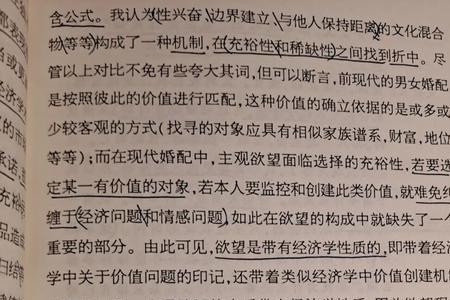 含公式。我认为性兴奋、边界建立、与他人保持距离的文化混合
物(等等)构成了一种机制,在(充裕性和稀缺性)之间找到折中。尽
管以上对比不免有些夸大其词,但可以断言,前现代的男女婚配
是按照彼此的价值进行匹配,这种价值的确立依据的是或多或
少较客观的方式(找寻的对象应具有相似家族谱系,财富,地位
等等);而在现代婚配中,主观欲望面临选择的充裕性,若要选
定某一有价值的对象,若本人要监控和创建此类价值,就难免纠
缠于(经济问题和情感问题),如此在欲望的构成中就缺失了一个
重要的部分。由此可见,欲望是带有经济学性质的,即带着经济
学中关于价值问题的印记,还带着类似经济学中价值创建机制